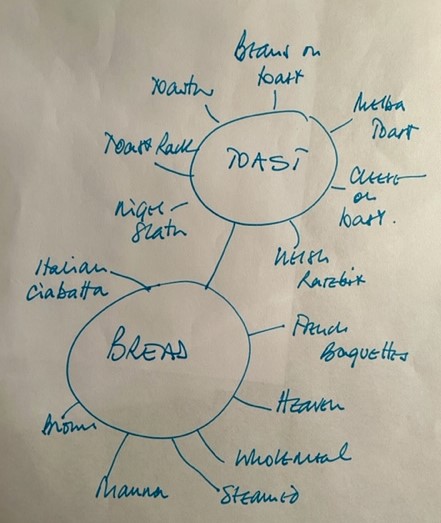 Beans on
toast
Toaster
Melba
Toast
Toast Rack
TOAST
Cheese
on
toast.
Nigel
Slater
Welsh
Rarebit
Italian
Ciabatta
French
Baguettes
BREAD
Heaven
Brown
Wholemeal
Manna
Steamed